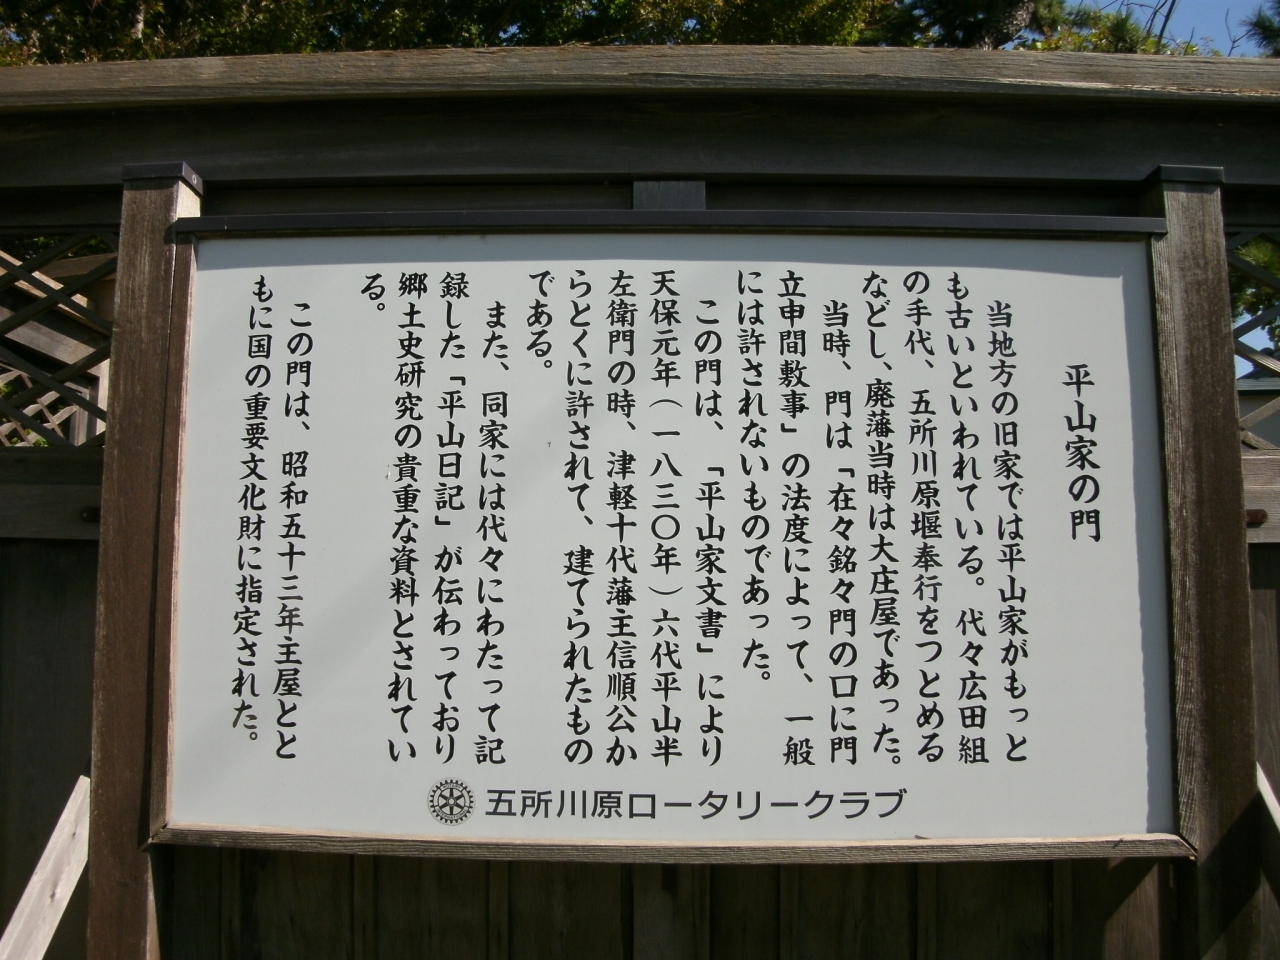 平山家の門
当地方の旧家では平山家がもっと
も古いといわれている。代々広田組
の手代、五所川原堰奉行をつとめる
などし、廃藩当時は大庄屋であった。
当時、門は「在々銘々門の口に門
立申間敷事」の法度によって、一般
には許されないものであった。
この門は、「平山家文書」により
天保元年(一八三〇年)六代平山半
左衛門の時、津軽十代藩主信順公か
らとくに許されて、建てられたもの
である。
また、同家には代々にわたって記
録した「平山日記」が伝わっており
郷土史研究の貴重な資料とされてい
る。
この門は、昭和五十三年主屋とと
もに国の重要文化財に指定された。
五所川原ロータリークラブ